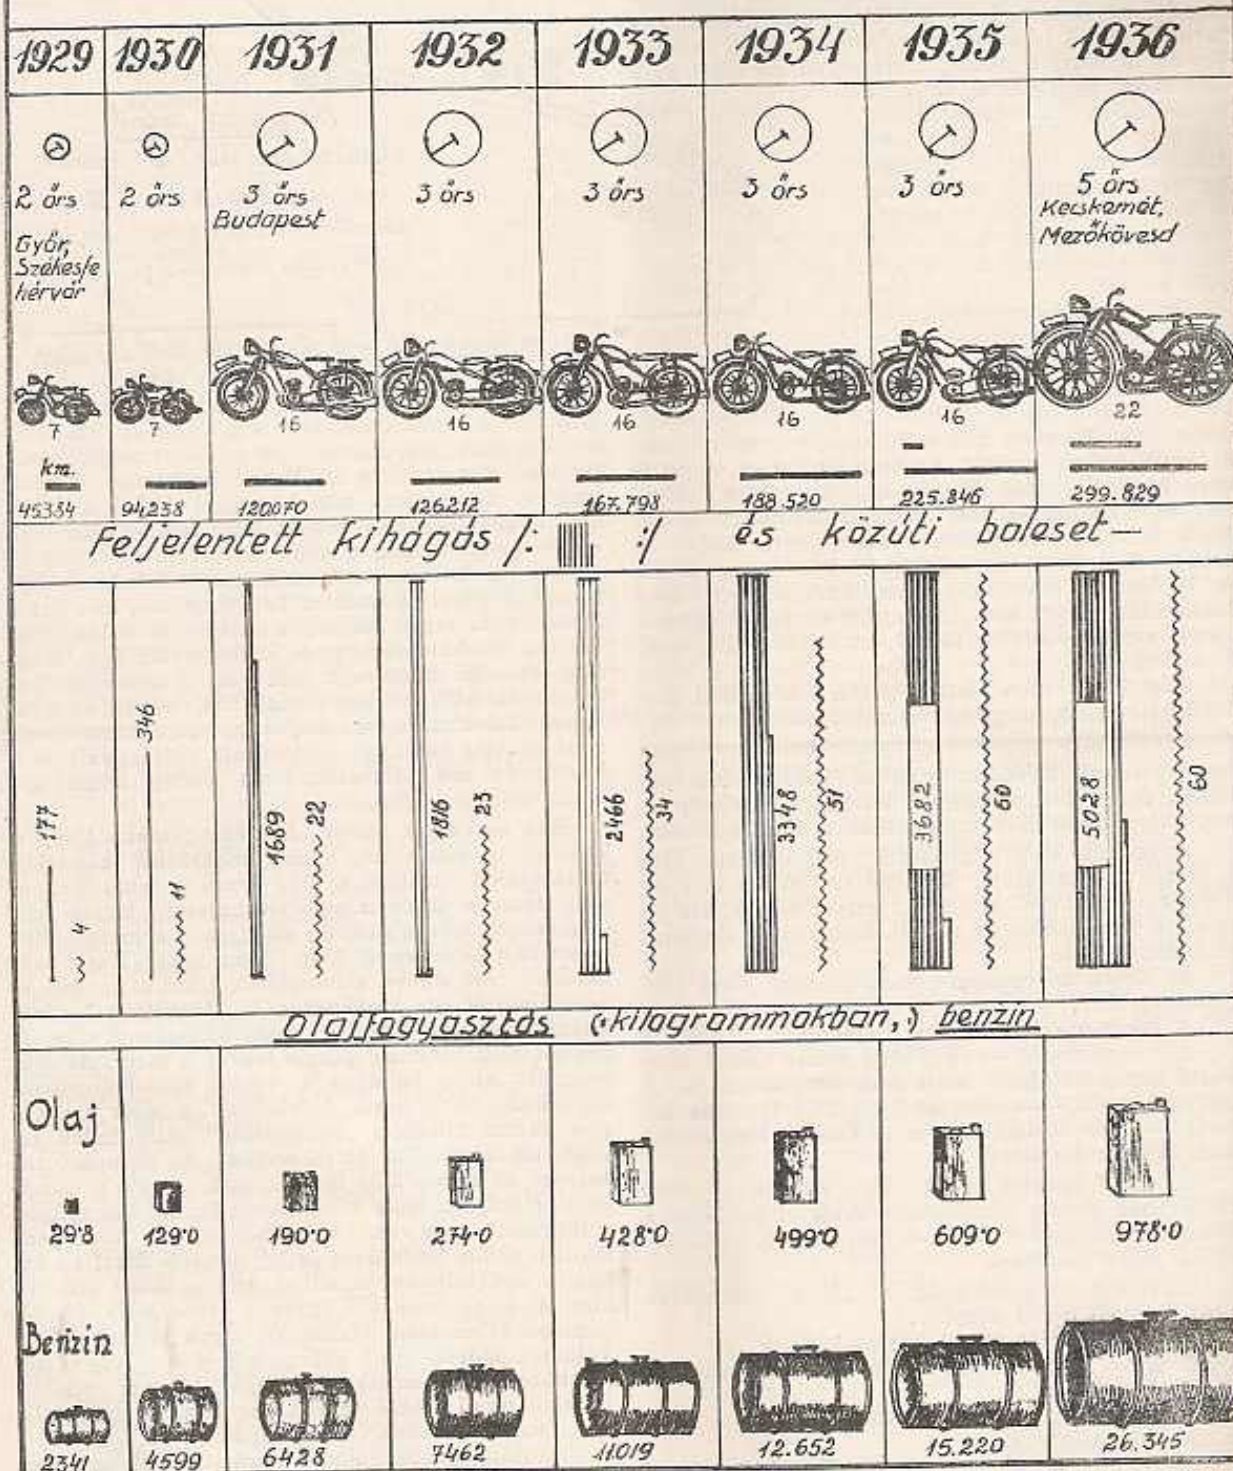 1929 1930 1931 1932 1933 1934 1935 1936
2 őrs 2 őrs 3 őrs 3 őrs 3 őrs 3 őrs 3 őrs 5 őrs
Győr, Székesfehérvár Budapest Kecskemét, Mezőkövesd
7 7 16 16 16 16 16 22
km.
45384 94.238 120.070 126.212 167.798 188.520 225.846 299.829
Feljelentett kihágás /: :/ és közúti baleset —
177 4 346 11 1689 22 1816 23 2466 34 3348 51 3682 60 5028 60
Olajfogyasztás (:kilogrammokban,:) benzin
Olaj
29·8 129·0 190·0 274·0 428·0 499·0 609·0 978·0
Benzin
2341 4599 6428 7462 11.019 12.652 15.220 26.345